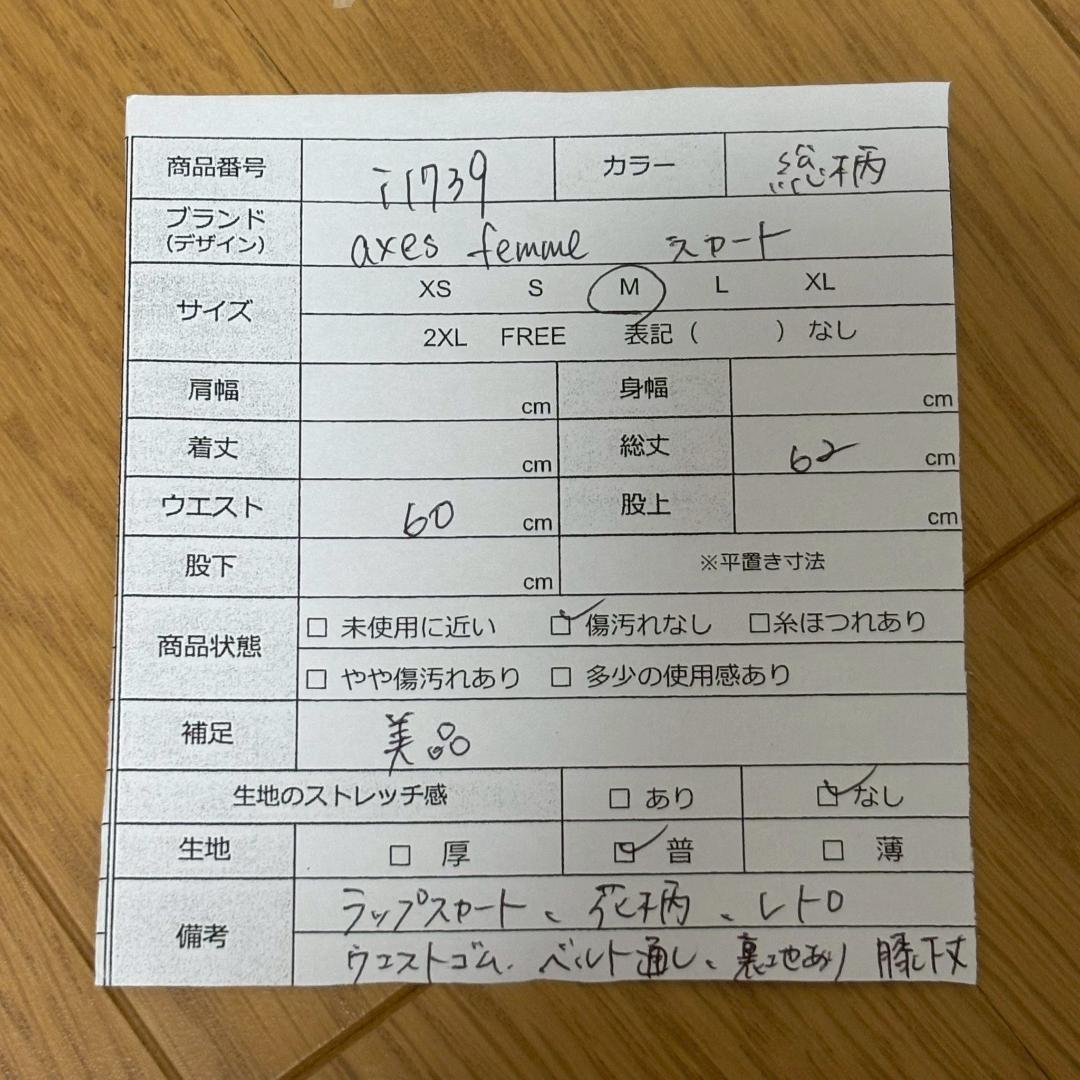 商品番号 i1739 カラー 総柄
ブランド axes femme スカート
(デザイン)
サイズ XS S M L XL
2XL FREE 表記( ) なし
肩幅 cm 身幅 cm
着丈 cm 総丈 62 cm
ウエスト 60 cm 股上 cm
股下 cm ※平置き寸法
商品状態 □ 未使用に近い ☑ 傷汚れなし □糸ほつれあり
□ やや傷汚れあり □ 多少の使用感あり
補足 美品
生地のストレッチ感 □ あり ☑ なし
生地 □ 厚 ☑ 普 □ 薄
備考 ラップスカート、花柄、レトロ
ウエストゴム、ベルト通し、裏地あり 膝下丈